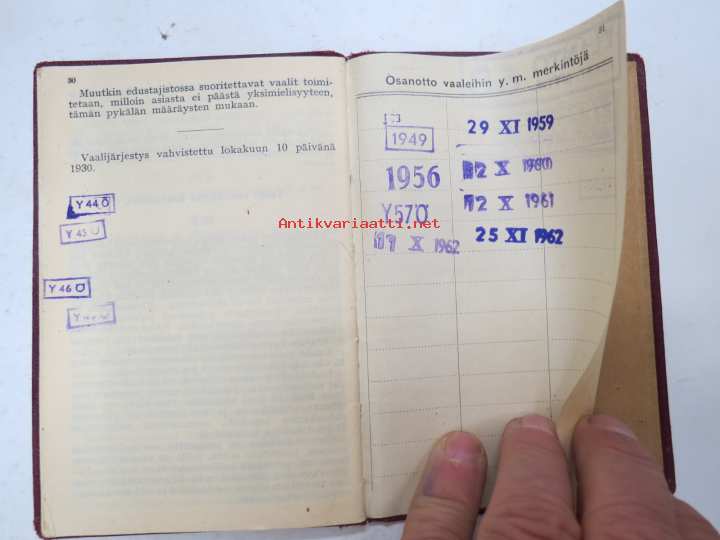 30
Muutkin edustajistossa suoritettavat vaalit toimi-
tetaan, milloin asiasta ei päästä yksimielisyyteen,
tämän pykälän määräysten mukaan.
Vaalijärjestys vahvistettu lokakuun 10 päivänä
1930.
Y 44 O
Y 45 O
Y 46 O
31
Osanotto vaaleihin y. m. merkintöjä
1949
29 XI 1959
1956
12 X
Y57O
12 X 1961
Antikvariaatti.net
X 1962
25 XI 1962